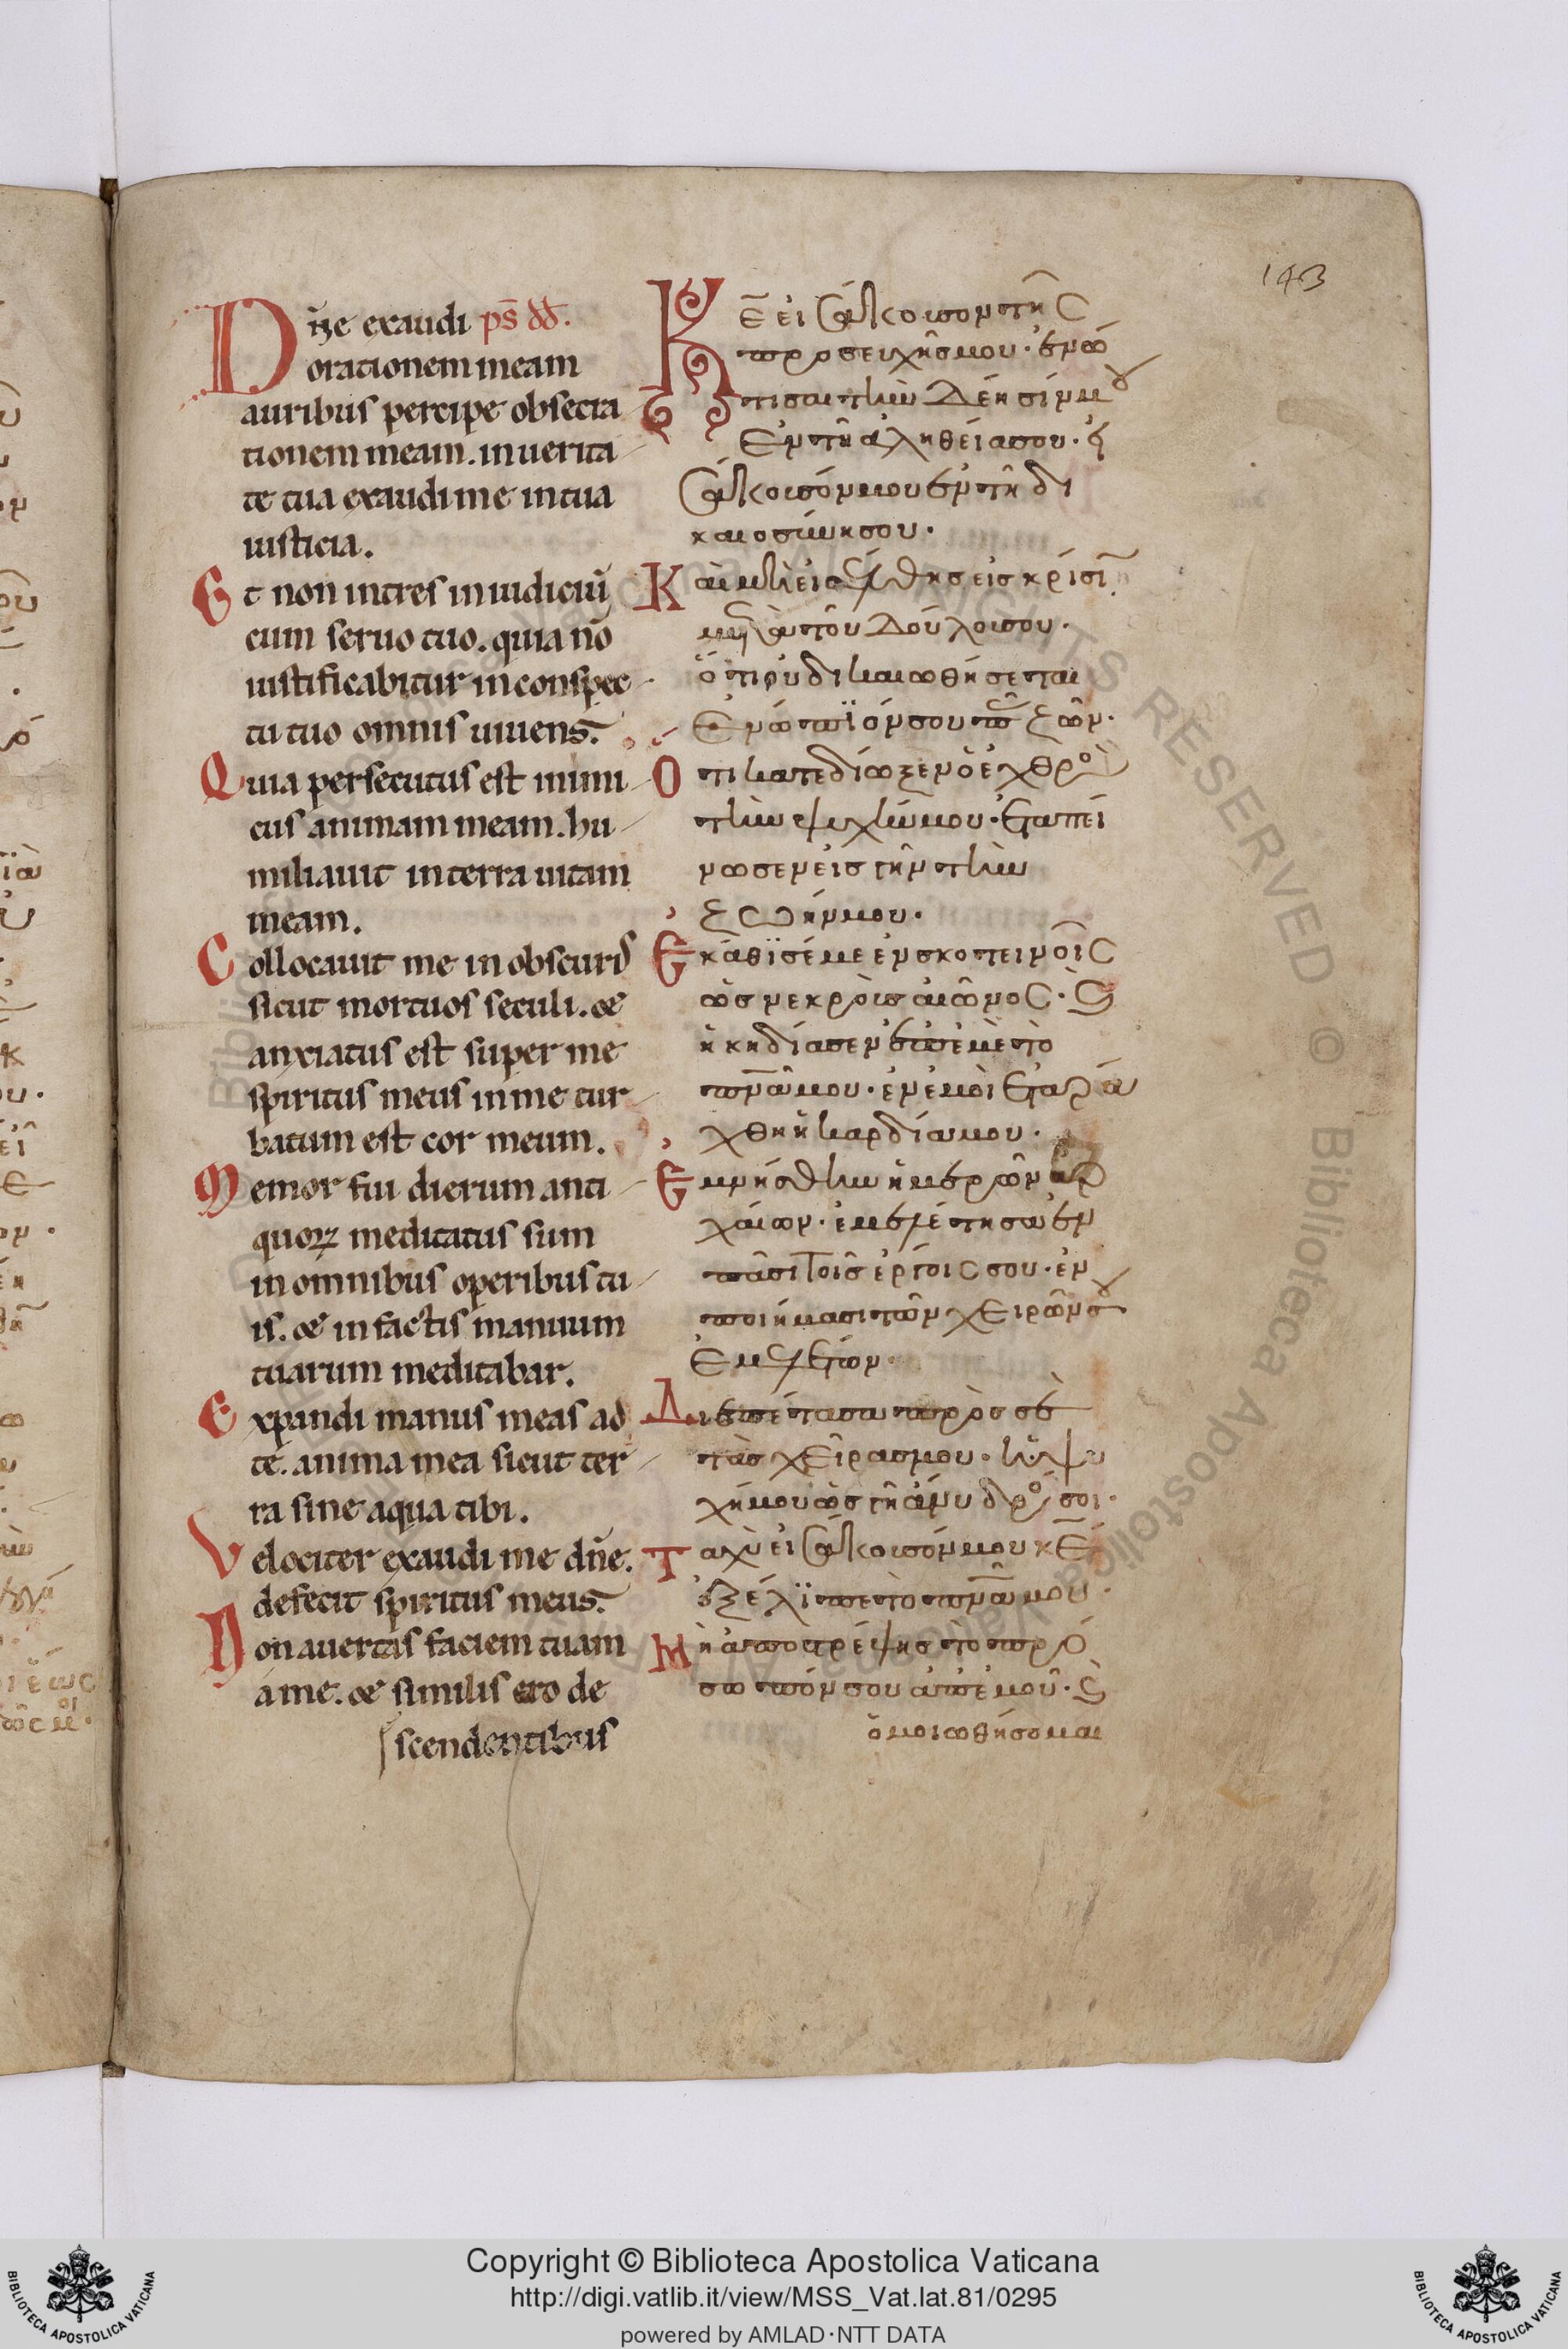 143
Dñe exaudi ps̄ dd.
orationem meam
auribus percipe obsecra
tionem meam. in uerita
te tua exaudi me in tua
iusticia.
Et non intres in iudiciū
cum seruo tuo. quia nō
iustificabitur in conspec
tu tuo omnis uiuens.
Quia persecutus est inimi
cus animam meam. hu
miliauit in terra uitam
meam.
Collocauit me in obscuris
sicut mortuos seculi. &
anxiatus est super me
spiritus meus in me tur
batum est cor meum.
Memor fui dierum anti
quorꝝ meditatus sum
in omnibus operibus tu
is. & in factis manuum
tuarum meditabar.
Expandi manus meas ad
te. anima mea sicut ter
ra sine aqua tibi.
Velociter exaudi me dñe.
defecit spiritus meus.
Non auertas faciem tuam
a me. & similis ero de
scendentibus
Κε̄ εἰσάκουσον τῆς
προσευχῆς μου. ἐνώ
τισαι τὴν δέησίν μου
Ἐν τῆ ἀληθεία σου. εἰ
σάκουσόν μου ἐν τῆ δι
καιοσύνη σου.
Καὶ μὴ εἰσέλθης εἰς κρίσιν
μετὰ τοῦ δούλου σου.
ὅτι οὐ δικαιωθήσεται
Ἐνώπϊόν σου πᾶς ζῶν.
Ὅτι κατεδίωξεν ὁ ἐχθρὸς
τὴν ψυχήν μου. Ἐταπεί
νωσεν εἰς γῆν τὴν
ζωήν μου.
Ἐκάθϊσέ με ἐν σκοτεινοῖς
ὡς νεκροὺς αἰῶνος. καὶ
ἠκηδίασεν ἐπ' ἐμὲ τὸ
πνᾶ μου. ἐν ἐμοὶ ἐταρά
χθη ἡ καρδία μου.
Ἐμνήσθην ἡμερῶν ἀρ
χαίων. ἐμελέτησα ἐν
πᾶσι τοῖς ἔργοις σου. ἐν
ποιήμασι τῶν χειρῶν σου
Ἐμελέτων.
Διεπέτασα πρὸς σὲ
τὰς χεῖρας μου. ἡ ψυ
χή μου ὡς γῆ ἄνυδρός σοι.
Ταχὺ εἰσάκουσόν μου κε̄
ἐξέλϊπε τὸ πνᾶ μου.
Μὴ ἀποστρέψης τὸ πρό
σωπόν σου ἀπ' ἐμοῦ. καὶ
ὁμοιωθήσομαι
Copyright © Biblioteca Apostolica Vaticana
http://digi.vatlib.it/view/MSS_Vat.lat.81/0295
powered by AMLAD·NTT DATA